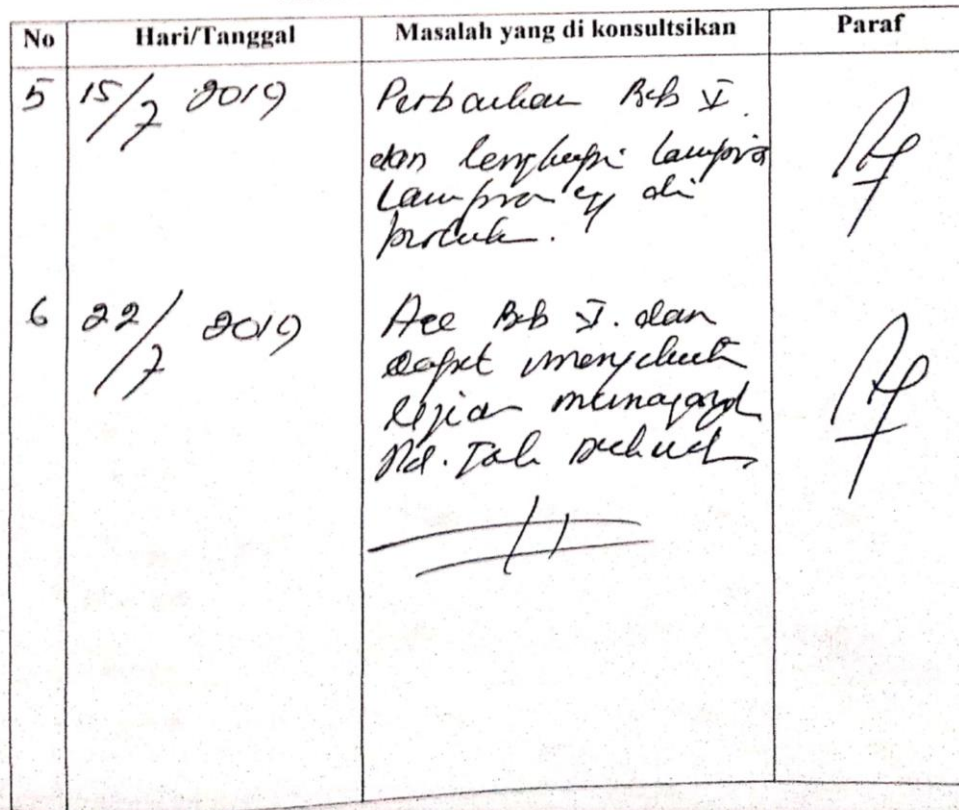 No Hari/Tanggal Masalah yang di konsultsikan Paraf
5 15/7 2019 Perbaikan Bab V.
dan lengkapi lampiran
lampiran yg di
perlukan.
6 22/7 2019 Acc Bab V. dan
dapat mengikuti
ujian munaqasyah